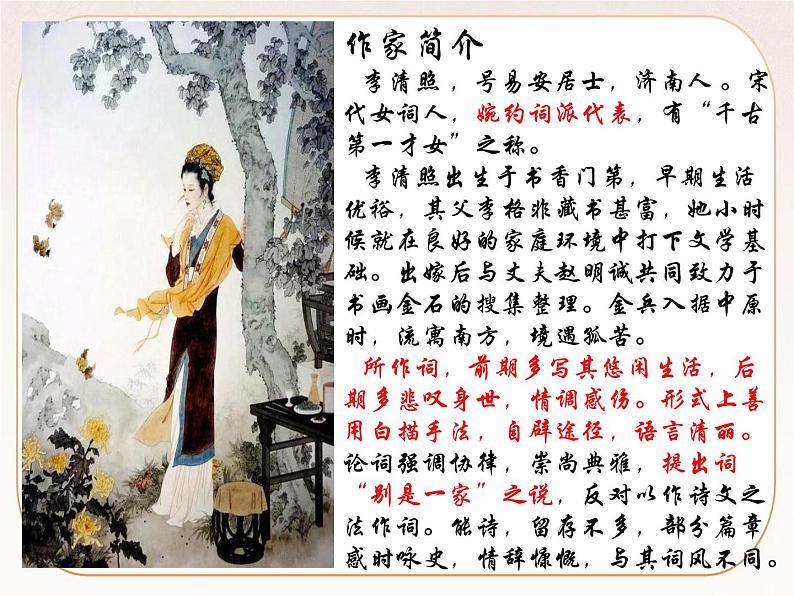 作家简介
李清照，号易安居士，济南人。宋
代女词人，婉约词派代表，有“千古
第一才女”之称。
李清照出生于书香门第，早期生活
优裕，其父李格非藏书甚富，她小时
候就在良好的家庭环境中打下文学基
础。出嫁后与丈夫赵明诚共同致力于
书画金石的搜集整理。金兵入据中原
时，流寓南方，境遇孤苦。
所作词，前期多写其悠闲生活，后
期多悲叹身世，情调感伤。形式上善
用白描手法，自辟途径，语言清丽。
论词强调协律，崇尚典雅，提出词
“别是一家”之说，反对以作诗文之
法作词。能诗，留存不多，部分篇章
感时咏史，情辞慷慨，与其词风不同。